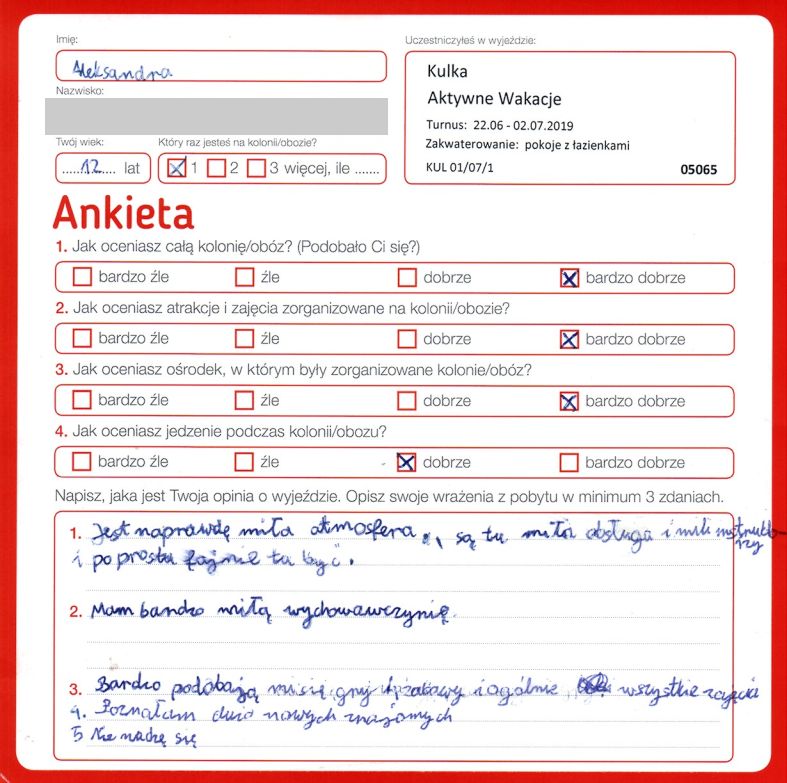 Imię:
Aleksandra
Nazwisko:
Twój wiek:
12 lat
Który raz jesteś na kolonii/obozie?
1 2 3 więcej, ile .......
Uczestniczyłeś w wyjeździe:
Kulka
Aktywne Wakacje
Turnus: 22.06 - 02.07.2019
Zakwaterowanie: pokoje z łazienkami
KUL 01/07/1 05065
Ankieta
1. Jak oceniasz całą kolonię/obóz? (Podobało Ci się?)
bardzo źle źle dobrze bardzo dobrze
2. Jak oceniasz atrakcje i zajęcia zorganizowane na kolonii/obozie?
bardzo źle źle dobrze bardzo dobrze
3. Jak oceniasz ośrodek, w którym były zorganizowane kolonie/obóz?
bardzo źle źle dobrze bardzo dobrze
4. Jak oceniasz jedzenie podczas kolonii/obozu?
bardzo źle źle dobrze bardzo dobrze
Napisz, jaka jest Twoja opinia o wyjeździe. Opisz swoje wrażenia z pobytu w minimum 3 zdaniach.
1. Jest naprawdę miła atmosfera, są tu miła obsługa i mili instruktorzy
i po prostu fajnie tu być.
2. Mam bardzo miłą wychowawczynię.
3. Bardzo podobają mi się gry i zabawy i ogólnie wszystkie zajęcia
4. Poznałam dużo nowych znajomych
5 Nie nudzę się